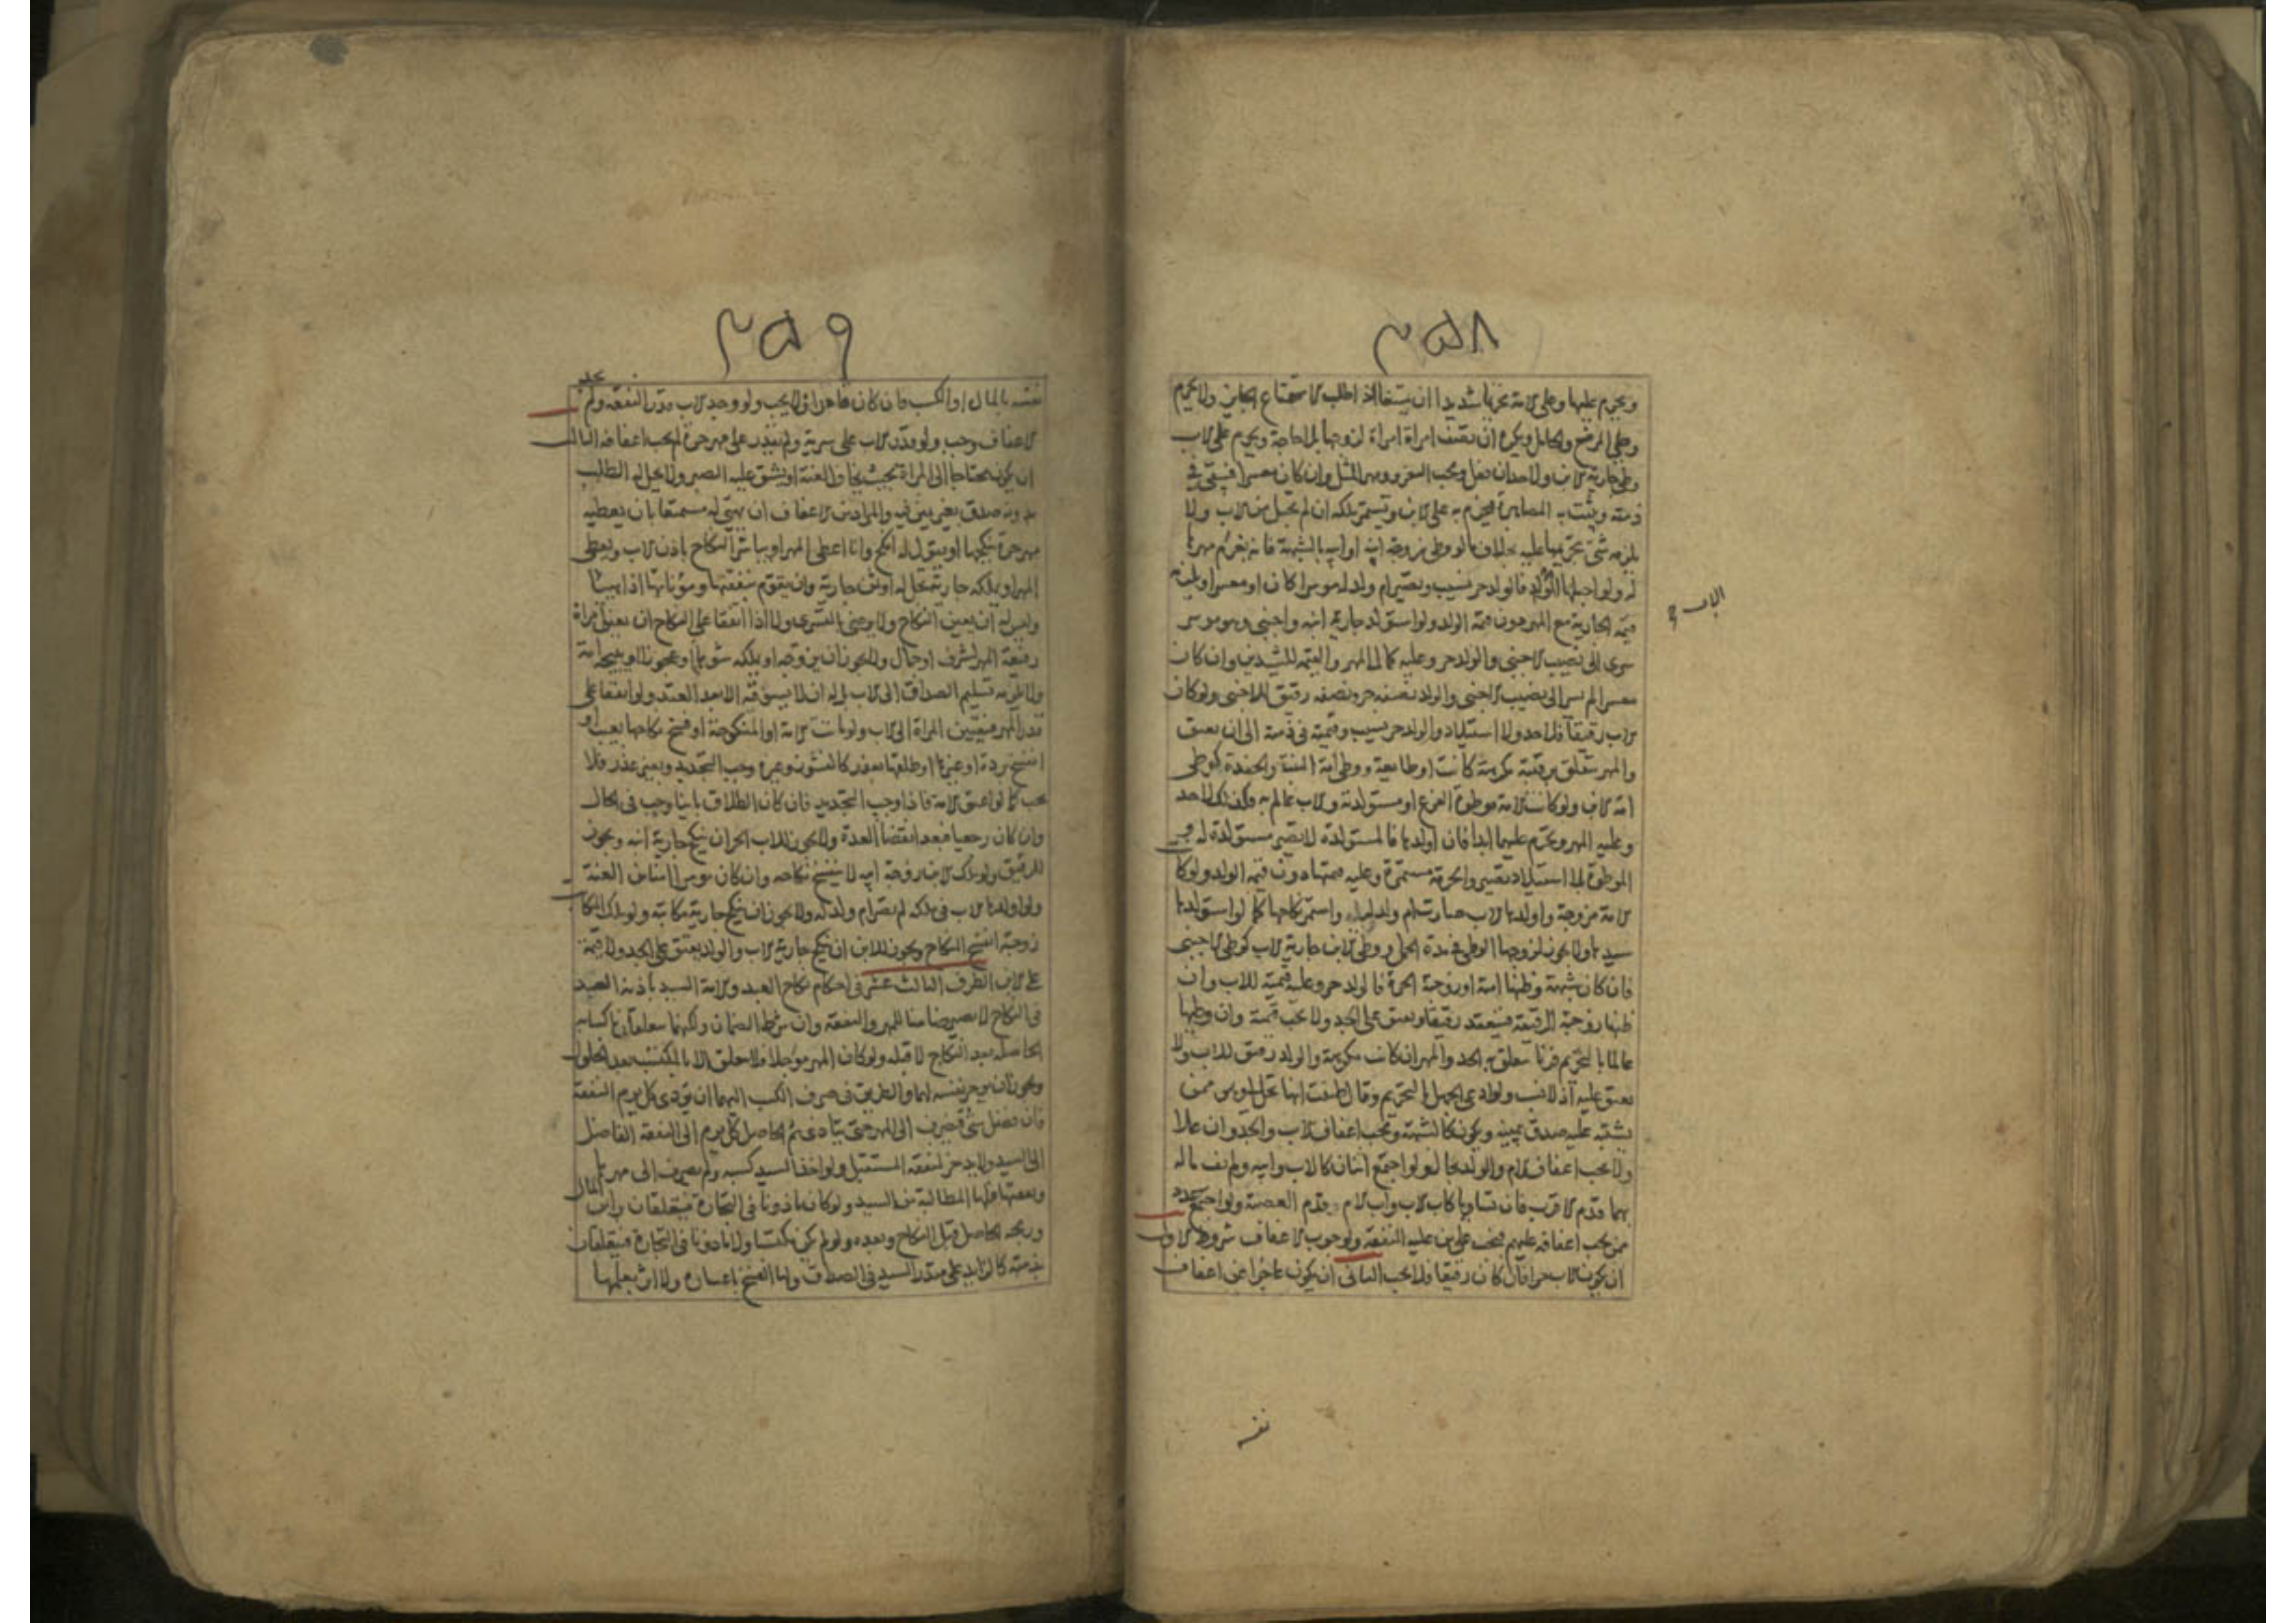 ٣٥٨
ويحرم عليها وعلى الامة تحريما شديدا ان
وطئ المرضع والحامل ويكره ان تصف امراة امراة لزوجها بلا حاجة ويحرم على الاب
وطئ جارية الابن ولا حد ان فعل ويجب التعزير ومهر المثل وان كان معسرا فيبقى في
ذمته ويثبت به المصاهرة فيحرم به على الابن وتستمر ملكه ان لم تحبل من الاب ولا
يلزمه شئ بتحريمها عليه بخلاف ما لو وطئ زوجة ابنه او ابيه بالشبهة فانه يغرم مهرها
له ولو احبلها فالولد حر نسيب وتصير ام ولد له موسرا كان او معسرا ويلزمه
الاب
قيمة الجارية مع المهر دون قيمة الولد ولو استولد جارية ابنه واجنبي وهو موسر
سرى الى نصيب الاجنبي والولد حر وعليه كمال المهر والقيمة وان كان
معسرا لم يسر الى نصيب الاجنبي والولد نصفه حر ونصفه رقيق للاجنبي ولو كان
الاب رقيقا فلا حد ولا استيلاد والولد حر نسيب وقيمته في ذمته الى ان يعتق
والمهر يتعلق برقبته مكرهة كانت او طايعة ووطئ امة البنت والحفدة كوطئ
امة الابن ولو كانت الامة موطوءة الفرع او مستولدته والاب عالم به فكذلك لا حد
وعليه المهر وتحرم عليهما ابدا فان اولدها فالمستولدة لا تصير مستولدة له و
الموطوءة بلا استيلاد تصير والحرمة مستمرة وعليه قيمتها دون قيمة الولد ولو كا
الامة مزوجة واولدها الاب صارت ام ولد له واستمر نكاحها كما لو استولدها
سيدها ولا يجوز لزوجها الوطئ في مدة الحمل ووطئ الابن جارية الاب كوطئ الاجنبي
فان كان بشبهة وظنها امته او زوجته الحرة فالولد حر وعليه قيمته للاب وان
ظنها زوجته الرقيقة فينعقد رقيقا ويعتق على الجد ولا يجب قيمته وان وطئها
عالما بالتحريم فزنا يتعلق به الحد والمهر ان كانت مكرهة والولد رقيق للاب ولا
يعتق عليه اذ لا نسب ولو ادعى الجهل بالتحريم وقال ظننت انها تحل لي وهو ممن
يشتبه عليه صدق بيمينه ويكون كالشبهة ويجب اعفاف الاب والجد وان علا
ولا يجب اعفاف الام والولد بحال ولو اجتمع اثنان كالاب وابيه ولم يف ماله
بهما قدم الاقرب فان تساويا كاب الاب واب الام قدم العصبة ولو اجتمع عدد
ممن يجب اعفافه عليهم فيجب على من عليه النفقة ولوجوب الاعفاف شروط الاول
ان يكون الاب حرا فان كان رقيقا فلا يجب الثاني ان يكون عاجزا عن اعفاف
نفسه
٣٥٩
نفسه بالمال او الكسب فان كان قادرا فلا يجب ولو وجد الاب قدر النفقة ولم يجد
الاعفاف وجب ولو قدر الاب على سرية ولم يقدر على مهر حرة لم يجب اعفافه الثالث
ان يكون محتاجا الى المراة بحيث يخاف العنت او يشق عليه الصبر ولا يحل له الطلب
بدونه صدق بغير يمين فيه والمراد من الاعفاف ان يهيئ له مستمتعا بان يعطيه
مهر حرة ينكحها او يقول له انكح وانا اعطي المهر او يباشر النكاح باذن الاب ويعطي
المهر او يملكه جارية تحل له او ثمن جارية وان يقوم بنفقتها ومؤناتها
وليس له ان يعين النكاح ولا يرضى بالتسري ولا اذا اتفقا على النكاح ان يعين امراة
رفيعة المهر لشرف او جمال ولا يجوز ان يزوجه او يملكه شوهاء او عجوزا او قبيحة
ولا يلزمه تسليم الصداق الى الاب بل له ان لا يسوقه الا بعد العقد ولو اتفقا على
قدر المهر فتعيين المراة الى الاب ولو ماتت الامة او المنكوحة او فسخ نكاحها بعيب او
انفسخ بردة او غيرها او طلقها بعذر كالنشوز وغيره وجب التجديد وبغير عذر فلا
يجب كما لو اعتق الامة فاذا وجب التجديد فان كان الطلاق باينا وجب في الحال
وان كان رجعيا فبعد انقضا العدة ولا يجوز للاب الحر ان ينكح جارية ابنه ويجوز
للرقيق ولو ملك الابن زوجة ابيه لا ينفسخ نكاحه وان كان موسرا العنت
ولو اولدها الاب في ملكه لم تصر ام ولد له ولا يجوز ان ينكح جارية مكاتبه ولو ملك المكاتب
زوجته انفسخ النكاح ويجوز للابن ان ينكح جارية الاب والولد يعتق على الجد ولا قيمة
على الابن الطرف الثالث عشر في احكام نكاح العبد والامة السيد باذنه العبد
في النكاح لا يصير ضامنا للمهر والنفقة وان شرط الضمان ولكنهما يتعلقان باكسابه
الحاصلة بعد النكاح لا قبله ولو كان المهر مؤجلا فلا تعلق الا بالمكتسب بعد الحلول
ويجوز ان يوجر نفسه لهما والطريق في صرف الكسب اليهما ان يودي كل يوم النفقة
فان فضل شئ فيصرف الى المهر حتى يتادى ثم الحاصل كل يوم الى النفقة الفاضل
الى السيد ولا يدخر لنفقة المستقبل ولو اخذ السيد كسبه ولم يصرف الى مهرها
ونفقتها فلها المطالبة من السيد ولو كان ماذونا في التجارة فيتعلقان براس المال
وربحه الحاصل قبل النكاح وبعده ولو لم يكن مكتسبا ولا ماذونا في التجارة فيتعلقان
بذمته كالزايد على مقدر السيد في الصداق ولها الفسخ باعساره ولا اثر بعلمها